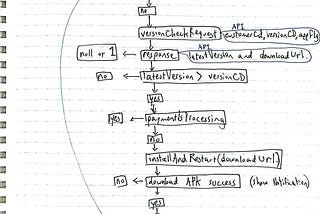 no
API
versionCheckRequest customerCd, versionCD, appFlg
API
null or 1 response latestVersion and downloadUrl.
no latestVersion > versionCD
yes
yes paymentIsProcessing
no
installAndRestart(downloadUrl)
no download APK success (show notification)
yes